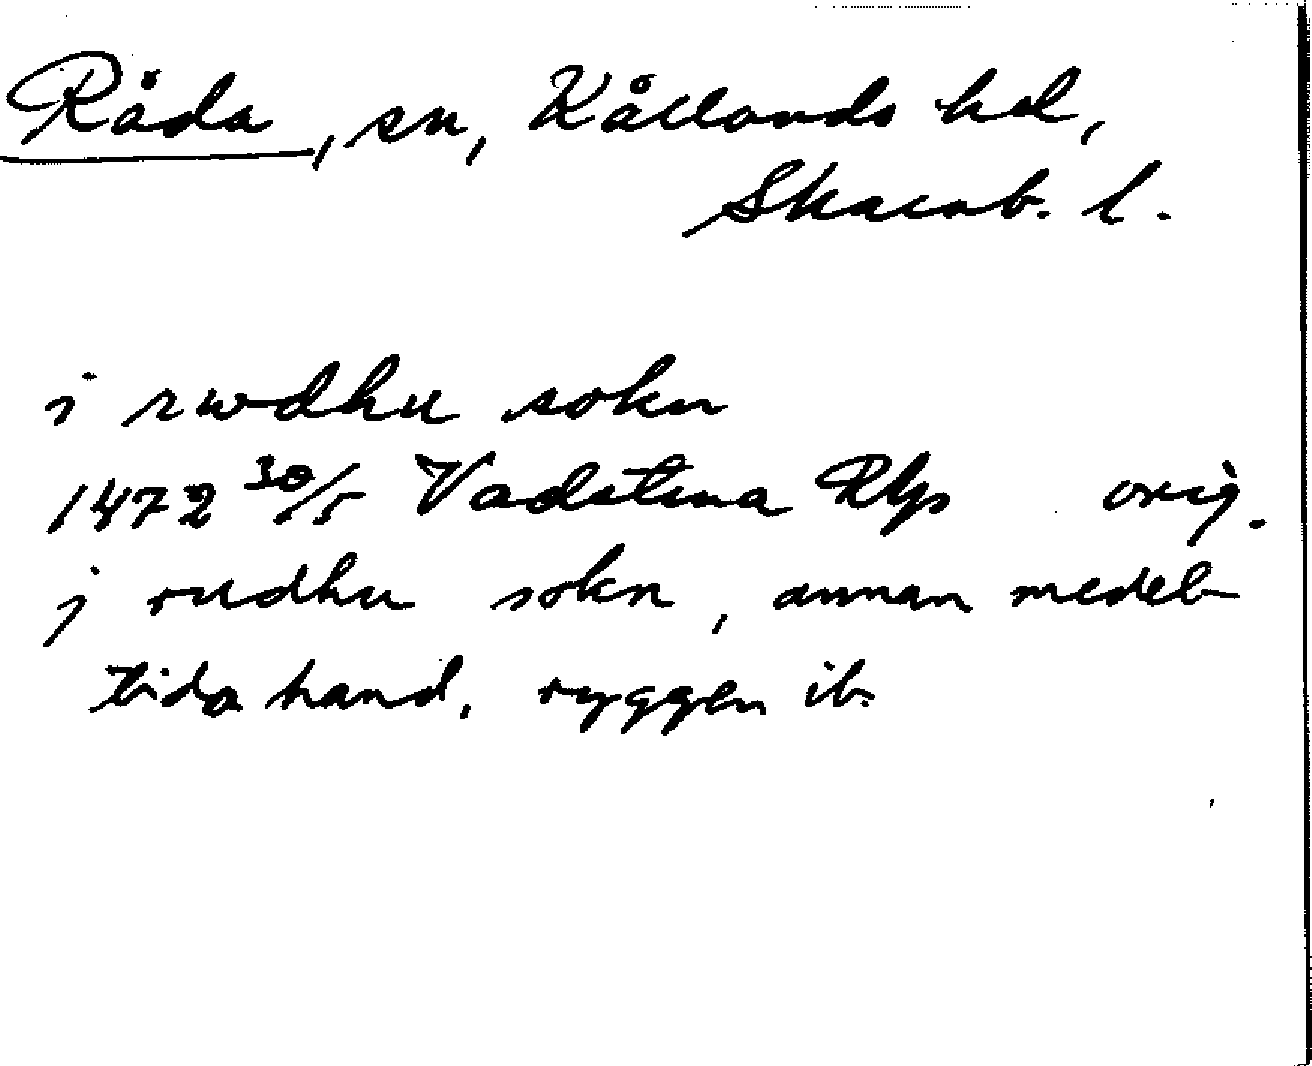 Råda, sn, Kållands hd,
Skarab. l.
i rwdhu sokn
1472 30/5 Vadstena RAp orig.
j rudhu sokn, annan medel-
tida hand, ryggen ib.